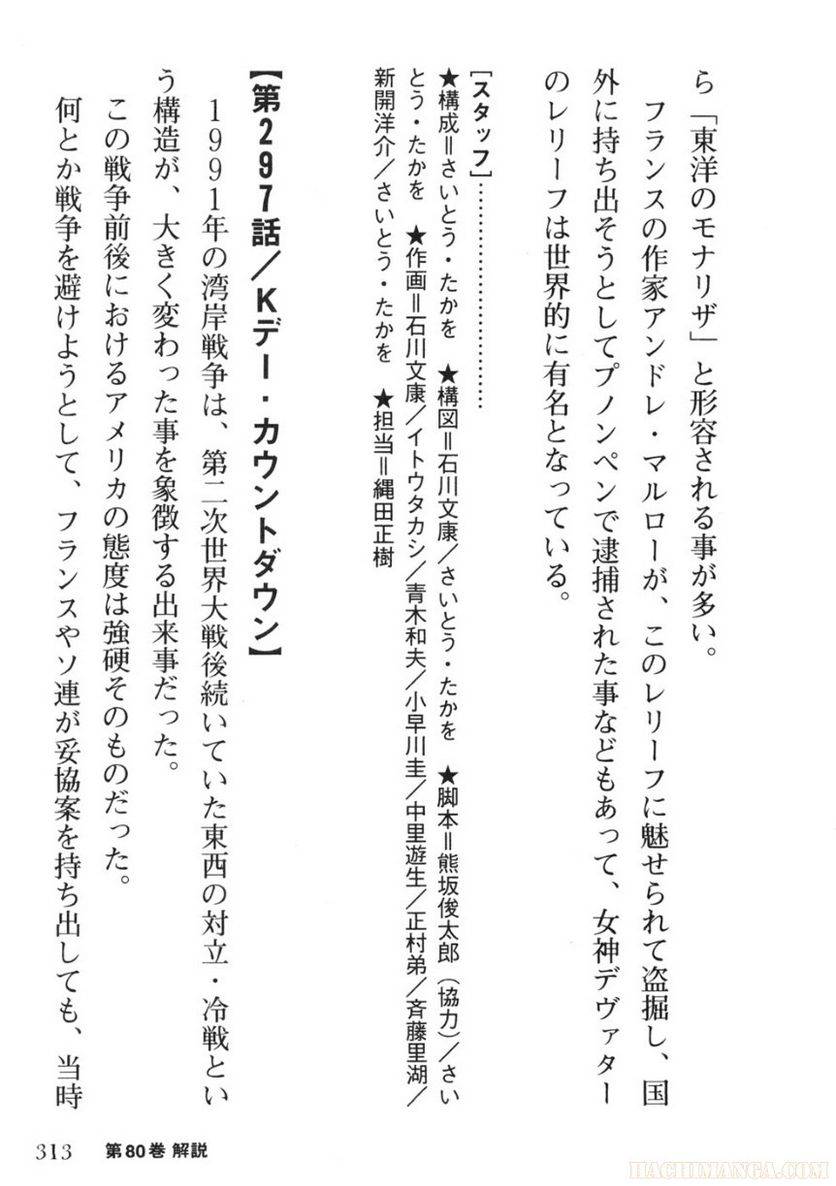 ら「東洋のモナリザ」と形容される事が多い。
フランスの作家アンドレ・マルローが、このレリーフに魅せられて盗掘し、国
外に持ち出そうとしてプノンペンで逮捕された事などもあって、女神デヴァター
のレリーフは世界的に有名となっている。
[スタッフ]……………………
★構成＝さいとう・たかを ★構図＝石川文康／さいとう・たかを ★脚本＝熊坂俊太郎（協力）／さい
とう・たかを ★作画＝石川文康／イトウタカシ／青木和夫／小早川圭／中里遊生／正村弟／斉藤里湖／
新開洋介／さいとう・たかを ★担当＝縄田正樹
【第297話／Kデー・カウントダウン】
1991年の湾岸戦争は、第二次世界大戦後続いていた東西の対立・冷戦とい
う構造が、大きく変わった事を象徴する出来事だった。
この戦争前後におけるアメリカの態度は強硬そのものだった。
何とか戦争を避けようとして、フランスやソ連が妥協案を持ち出しても、当時
313 第80巻 解説
HACHIMANGA.COM